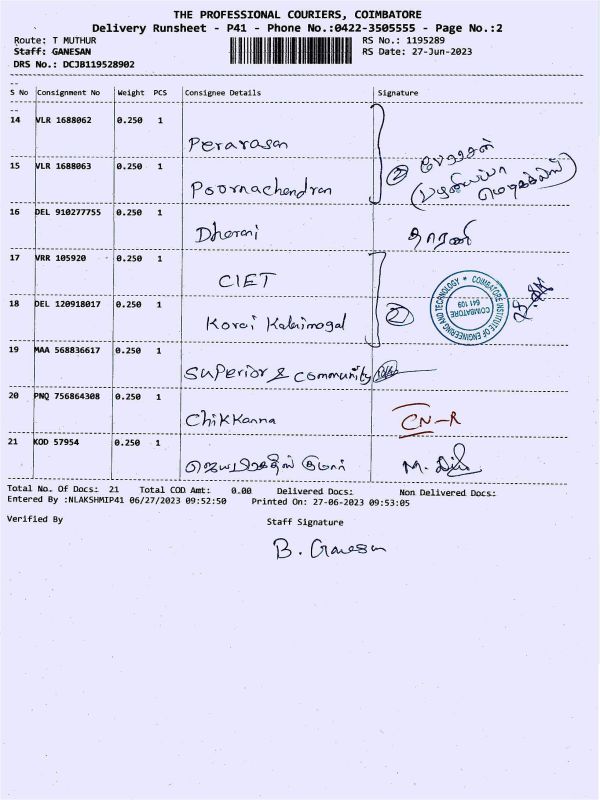 THE PROFESSIONAL COURIERS, COIMBATORE
Delivery Runsheet - P41 - Phone No.:0422-3505555 - Page No.:2
Route: T MUTHUR RS No.: 1195289
Staff: GANESAN RS Date: 27-Jun-2023
DRS No.: DCJB119528902
S No Consignment No Weight PCS Consignee Details Signature
14 VLR 1688062 0.250 1 Perarasan
15 VLR 1688063 0.250 1 Poornachendran
② பேரரசன்
16 DEL 910277755 0.250 1 Dharani தாரணி
17 VRR 105920 0.250 1 CIET
18 DEL 120918017 0.250 1 Korai Kalaimagal
②
COIMBATORE INSTITUTE OF ENGINEERING AND TECHNOLOGY * COIMBATORE 641 109
19 MAA 568836617 0.250 1 Superior & community
20 PNQ 756864308 0.250 1 Chikkanna CN-R
21 KOD 57954 0.250 1 M.
Total No. Of Docs: 21 Total COD Amt: 0.00 Delivered Docs: Non Delivered Docs:
Entered By :NLAKSHMIP41 06/27/2023 09:52:50 Printed On: 27-06-2023 09:53:05
Verified By Staff Signature
B. Ganesan